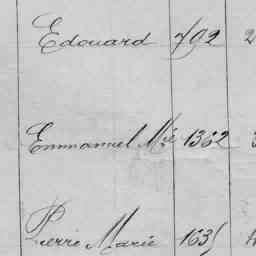 Edouard 792 2
Emmanuel Mie 1362 3
Pierre Marie 1635